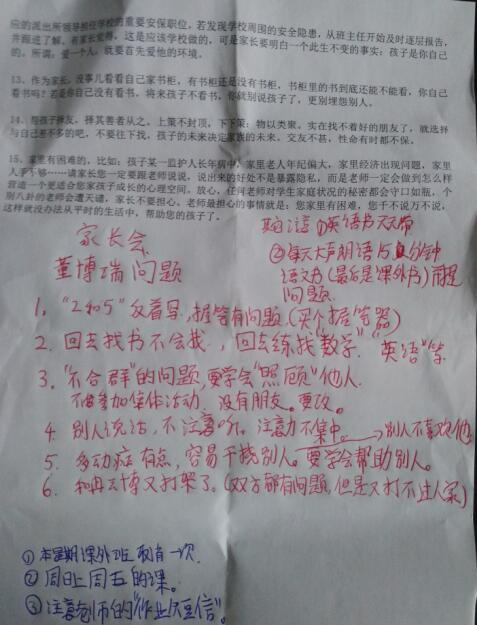 应的派出所领导担任学校的重要安保职位，若发现学校周围的安全隐患，从班主任开始及时逐层报告，
并跟进了解。有家长觉得，这是应该学校做的，可是家长要明白一个此生不变的事实：孩子是你自己
的。所谓：爱一个人，就要首先爱他的环境。
13、作为家长，没事儿看看自己家书柜，有书柜还是没有书柜，书柜里的书到底还能不能看，你自己
看书吗？若是你自己没有看书，将来孩子不看书，你就别说孩子了，更别埋怨别人。
14、帮孩子择友，择其善者从之。上策不封顶，下下策：物以类聚。实在找不着好的朋友了，就选择
与自己差不多的吧，不要往下找，孩子的未来决定家族的未来。交友不甚，性命有时都不保。
15、家里有困难的，比如：孩子某一监护人长年病中，家里老人年纪偏大，家里经济出现问题，家里
人手不够……请家长您一定要跟老师说说，说出来的好处不是暴露隐私，而是老师一定会做到怎么样
营造一个更适合您家孩子成长的心理空间。放心，任何老师对学生家庭状况的秘密都会守口如瓶，个
别八卦的老师会遭天谴，家长不要担心。老师最担心的事情就是：您家里有困难，您千不说万不说，
这样就没办法从平时的生活中，帮助您的孩子了。
家长会
董博瑞问题
①英语书天天带
②每天大声朗语
语文书(最后是课外书)前提
问题
1、“2和5”反着写，握笔有问题(买个握笔器)
2、回去找书不会找，回去练找“数学”“英语”等
3、“不合群”的问题，要学会“照顾”他人
不要参加集体活动，没有朋友。要改。
4、别人说话，不注意听，注意力不集中。→别人不喜欢他
5、多动症有点，容易干扰别人。要学会帮助别人。
6、和冉天博又打架了。(双方都有问题，但是又打不过人家)
①本星期课外班 取有一次
②周日上周五的课。
③注意老师的“作业短信”。